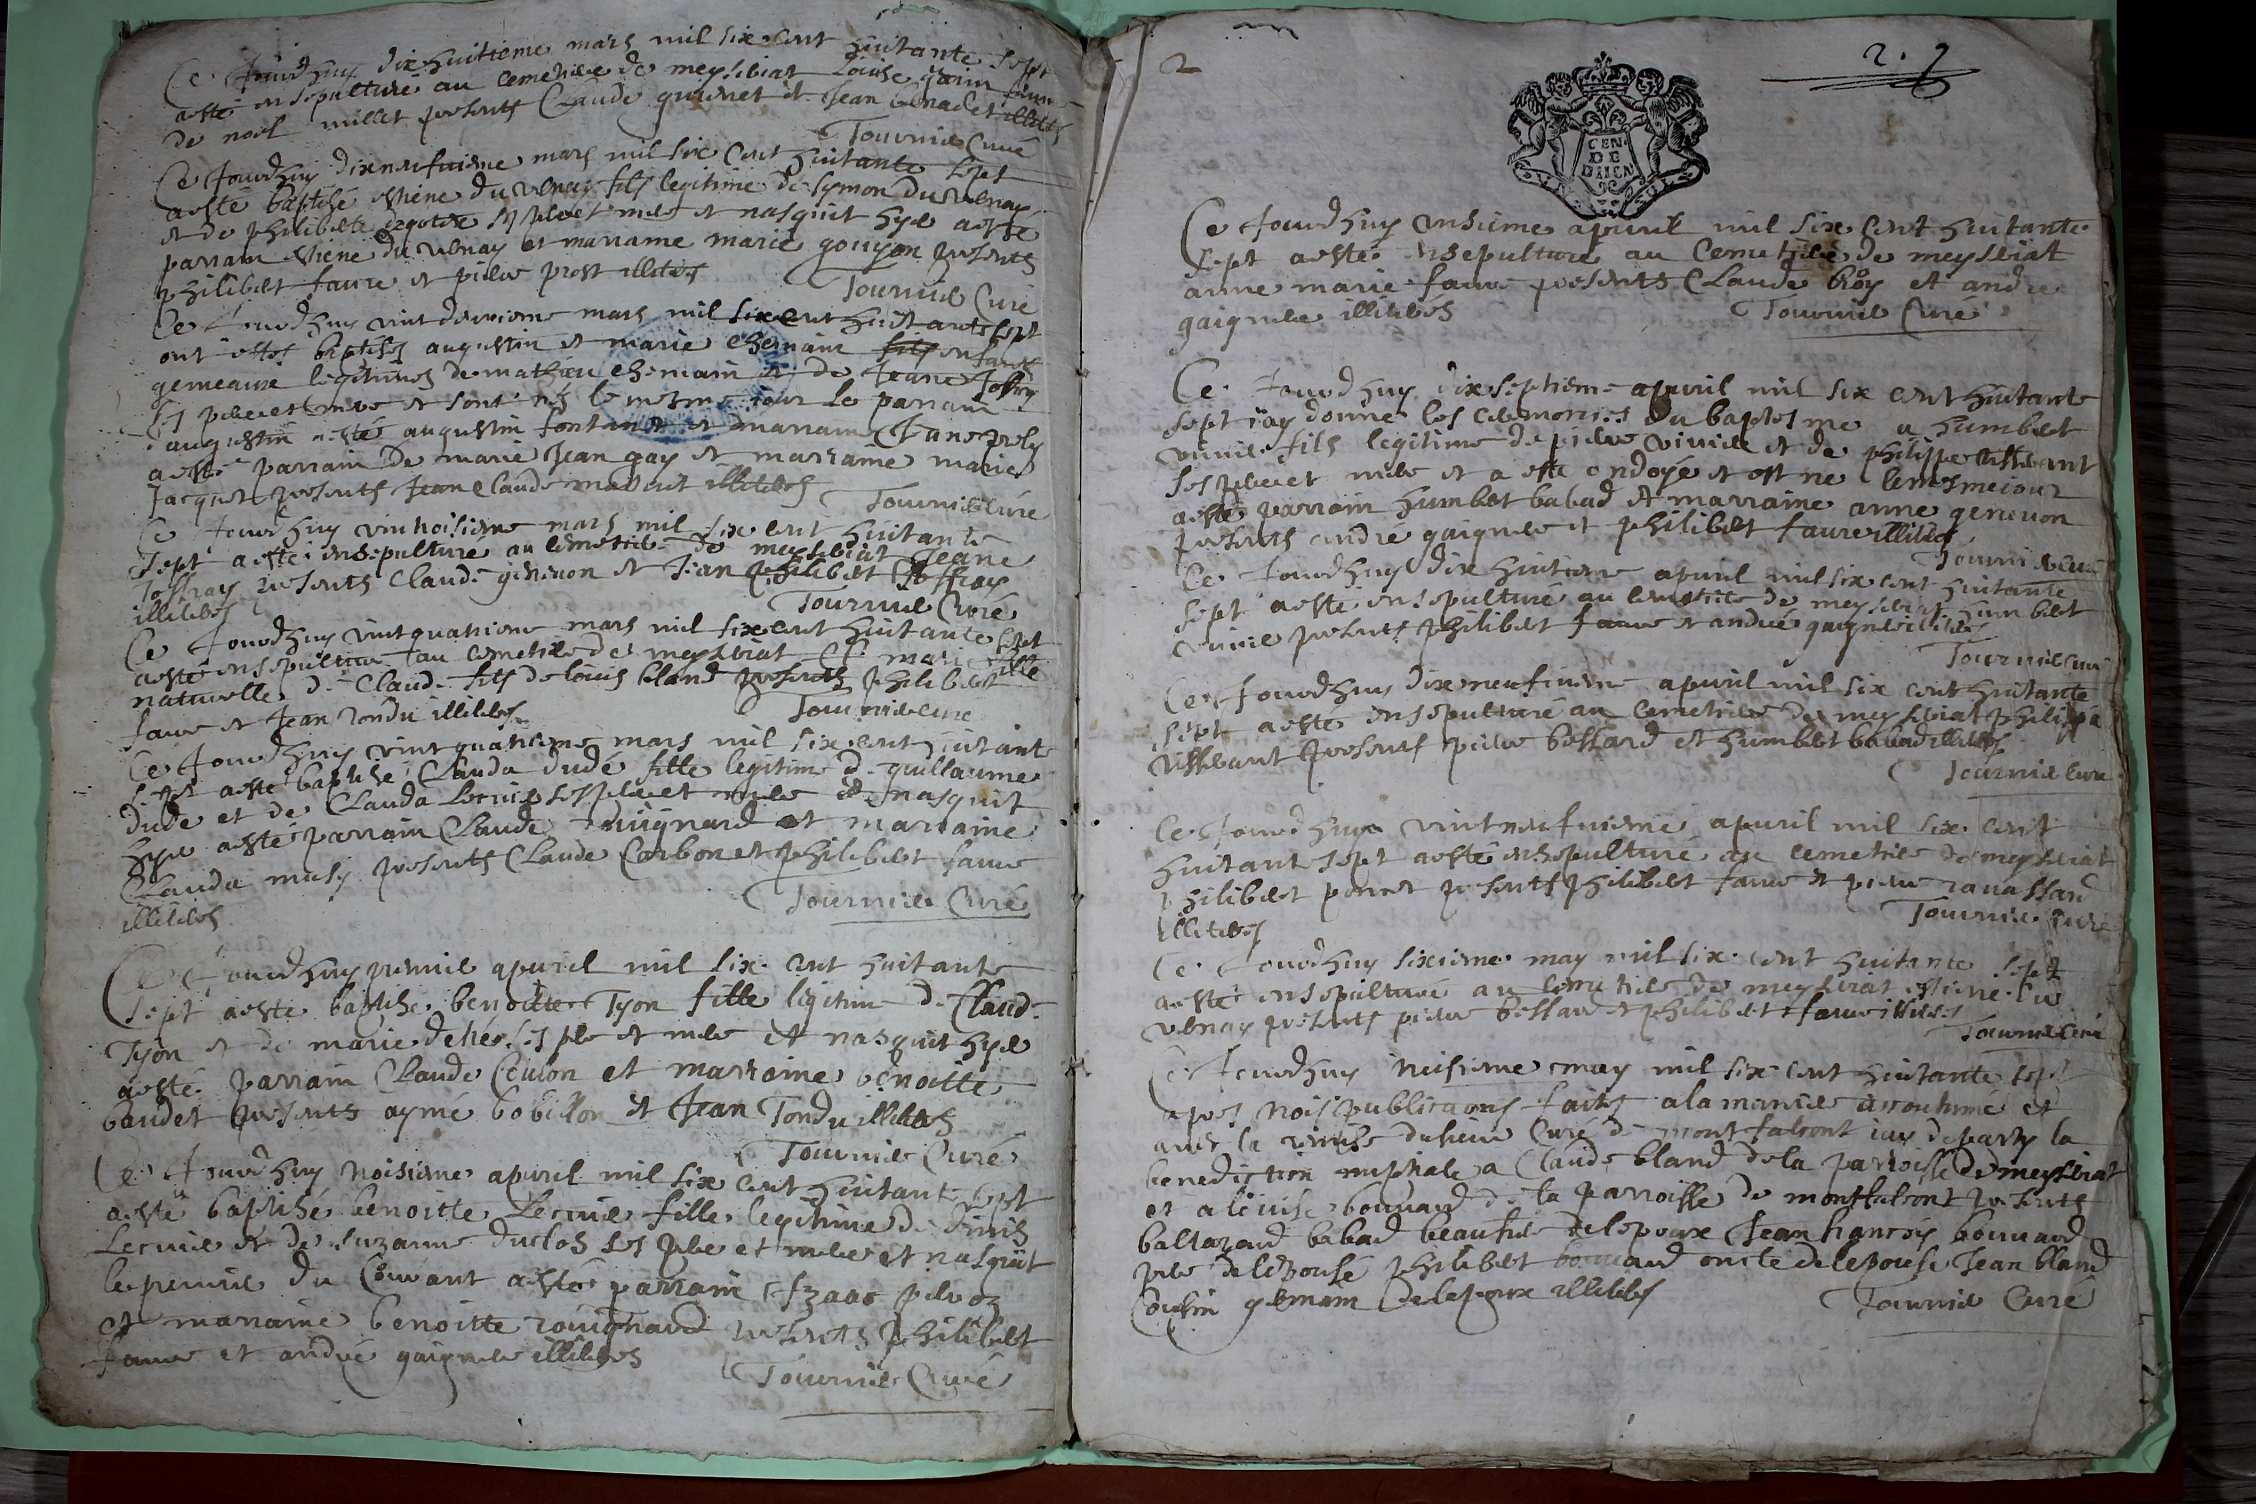 Ce Jourdhuy dixhuitieme mars mil six cent huitante sept
aesté ensepulturé au cemetiere de meyseriat Louise
de noel millet presents Claude et Jean illiteres
Tournier Curé
Ce Jourdhuy dixneufuieme mars mil six cent huitante sept
aesté baptisé estiene du vernay fils legitime de symon du vernay
et de philiberte ses pere et mere et nasquit hyer aesté
parrain estiene du vernay et marraine marie goujon presents
philibert faure et piere prost illiteres
Tournier Curé
Ce Jourdhuy vint deuxieme mars mil six cent huitante sept
ont estes baptisés augustin et marie chemain fils enfants
gemeaux legitimes de mathieu chemain et de Jeane Joffray
ses pere et mere et sont nés le mesme jour le parrain
d'augustin aesté augustin fontanet et marraine Jeane
aesté parrain de marie Jean gay et marraine marie
Jacquet presents Jean Claude illiteres
Tournier Curé
Ce Jourdhuy vintroisieme mars mil six cent huitante
sept aesté ensepulturé au cemetiere de meyseriat Jeane
Joffray presents Claude genevon et Jean philibert Joffray
illiteres
Tournier Curé
Ce Jourdhuy vintquatrieme mars mil six cent huitante sept
aesté ensepulturé au cemetiere de meyseriat marie fille
naturelle de Claude fils de louis bland presents philibert
faure et Jean Tondu illiteres
Tournier Curé
Ce Jourdhuy vintquatrieme mars mil six cent huitante
sept aesté baptisé Clauda dudé fille legitime de guillaume
dudé et de Clauda Lecuier ses pere et mere et nasquit
hyer aesté parrain Claude rouignard et marraine
Clauda presents Claude Carbonet philibert faure
illiteres
Tournier Curé
Ce Jourdhuy premier apuril mil six cent huitante
sept aesté baptisé benoitte Tyon fille legitime de Claude
Tyon et de marie ses pere et mere et nasquit hyer
aesté parrain Claude et marraine benoitte
baudet presents aymé bobillon et Jean Tondu illiteres
Tournier Curé
Ce Jourdhuy troisieme apuril mil six cent huitante sept
aesté baptisé benoitte Lecuier fille legitime de denis
Lecuier et de suzanne duclos ses pere et mere et nasquit
le premier du Courant aesté parrain Izaac
et marraine benoitte rouignard presents philibert
faure et andré gaignere illiteres
Tournier Curé
2
2. 7
GEN
DE
DAIEN
Ce Jourdhuy unsieme apuril mil six cent huitante
sept aesté ensepulturé au Cemetiere de meyseriat
anne marie faure presents Claude broy et andre
gaignere illiteres
Tournier Curé
Ce Jourdhuy dixseptieme apuril mil six cent huitante
sept jay donné les ceremonies du baptesme a humbert
fils legitime de piere et de philippe
ses pere et mere et a este ondoyé et est ne le mesme jour
aesté parrain humbert babad et marraine anne genevon
presents andré gaignere et philibert faure illiteres
Tournier Curé
Ce Jourdhuy dixhuitieme apuril mil six cent huitante
sept aesté ensepulturé au cemetiere de meyseriat humbert
presents philibert faure et andré gaignere illiteres
Tournier Curé
Ce Jourdhuy dixneufuieme apuril mil six cent huitante
sept aesté ensepulturé au cemetiere de meyseriat philippa
presents piere bessard et humbert babad illiteres
Tournier Curé
Ce Jourdhuy vintneufuieme apuril mil six cent
huitante sept aesté ensepulturé au cemetiere de meyseriat
philibert perret presents philibert faure et piere rauassard
illiteres
Tournier Curé
Ce Jourdhuy sixieme may mil six cent huitante sept
aesté ensepulturé au cemetiere de meyseriat estiene du
vernay presents piere bessard et philibert faure illiteres
Tournier Curé
Ce Jourdhuy may mil six cent huitante sept
apres trois publications faites a la maniere accoutumé et
aueq la remise du sieur Curé de montfalcont jay departy la
benediction nuptiale a Claude bland de la parroisse de meyseriat
et a louise bouuard de la parroisse de montfalcont presents
baltazard babad beaufrere de lespoux Jean francois bouuard
pere de lespouse philibert bouuard oncle de lespouse Jean bland
Cousin germain de lespoux illiteres
Tournier Curé